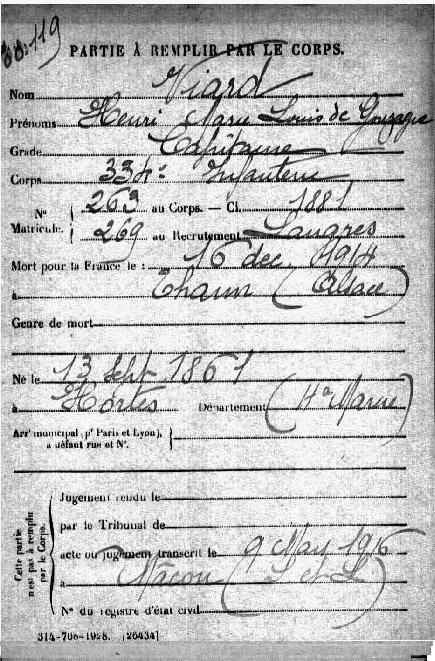 PARTIE À REMPLIR PAR LE CORPS.
Nom Viard
Prénoms Henri Marie Louis de Gonzague
Grade Capitaine
Corps 334e Infanterie
N° Matricule. { 263 au Corps. — Cl. 1881
269 au Recrutement Langres
Mort pour la France le : 16 dec. 1914
à Thann (Alsace)
Genre de mort
Né le 13 Sept 1861
à Hortes Département (Hte Marne)
Arrt municipal (pr Paris et Lyon), à défaut rue et N°.
Cette partie n'est pas à remplir par le Corps.
Jugement rendu le
par le Tribunal de
acte ou jugement transcrit le 9 May 1916
à Mâcon (S et L)
N° du registre d'état civil
314-708-1928. [26434]